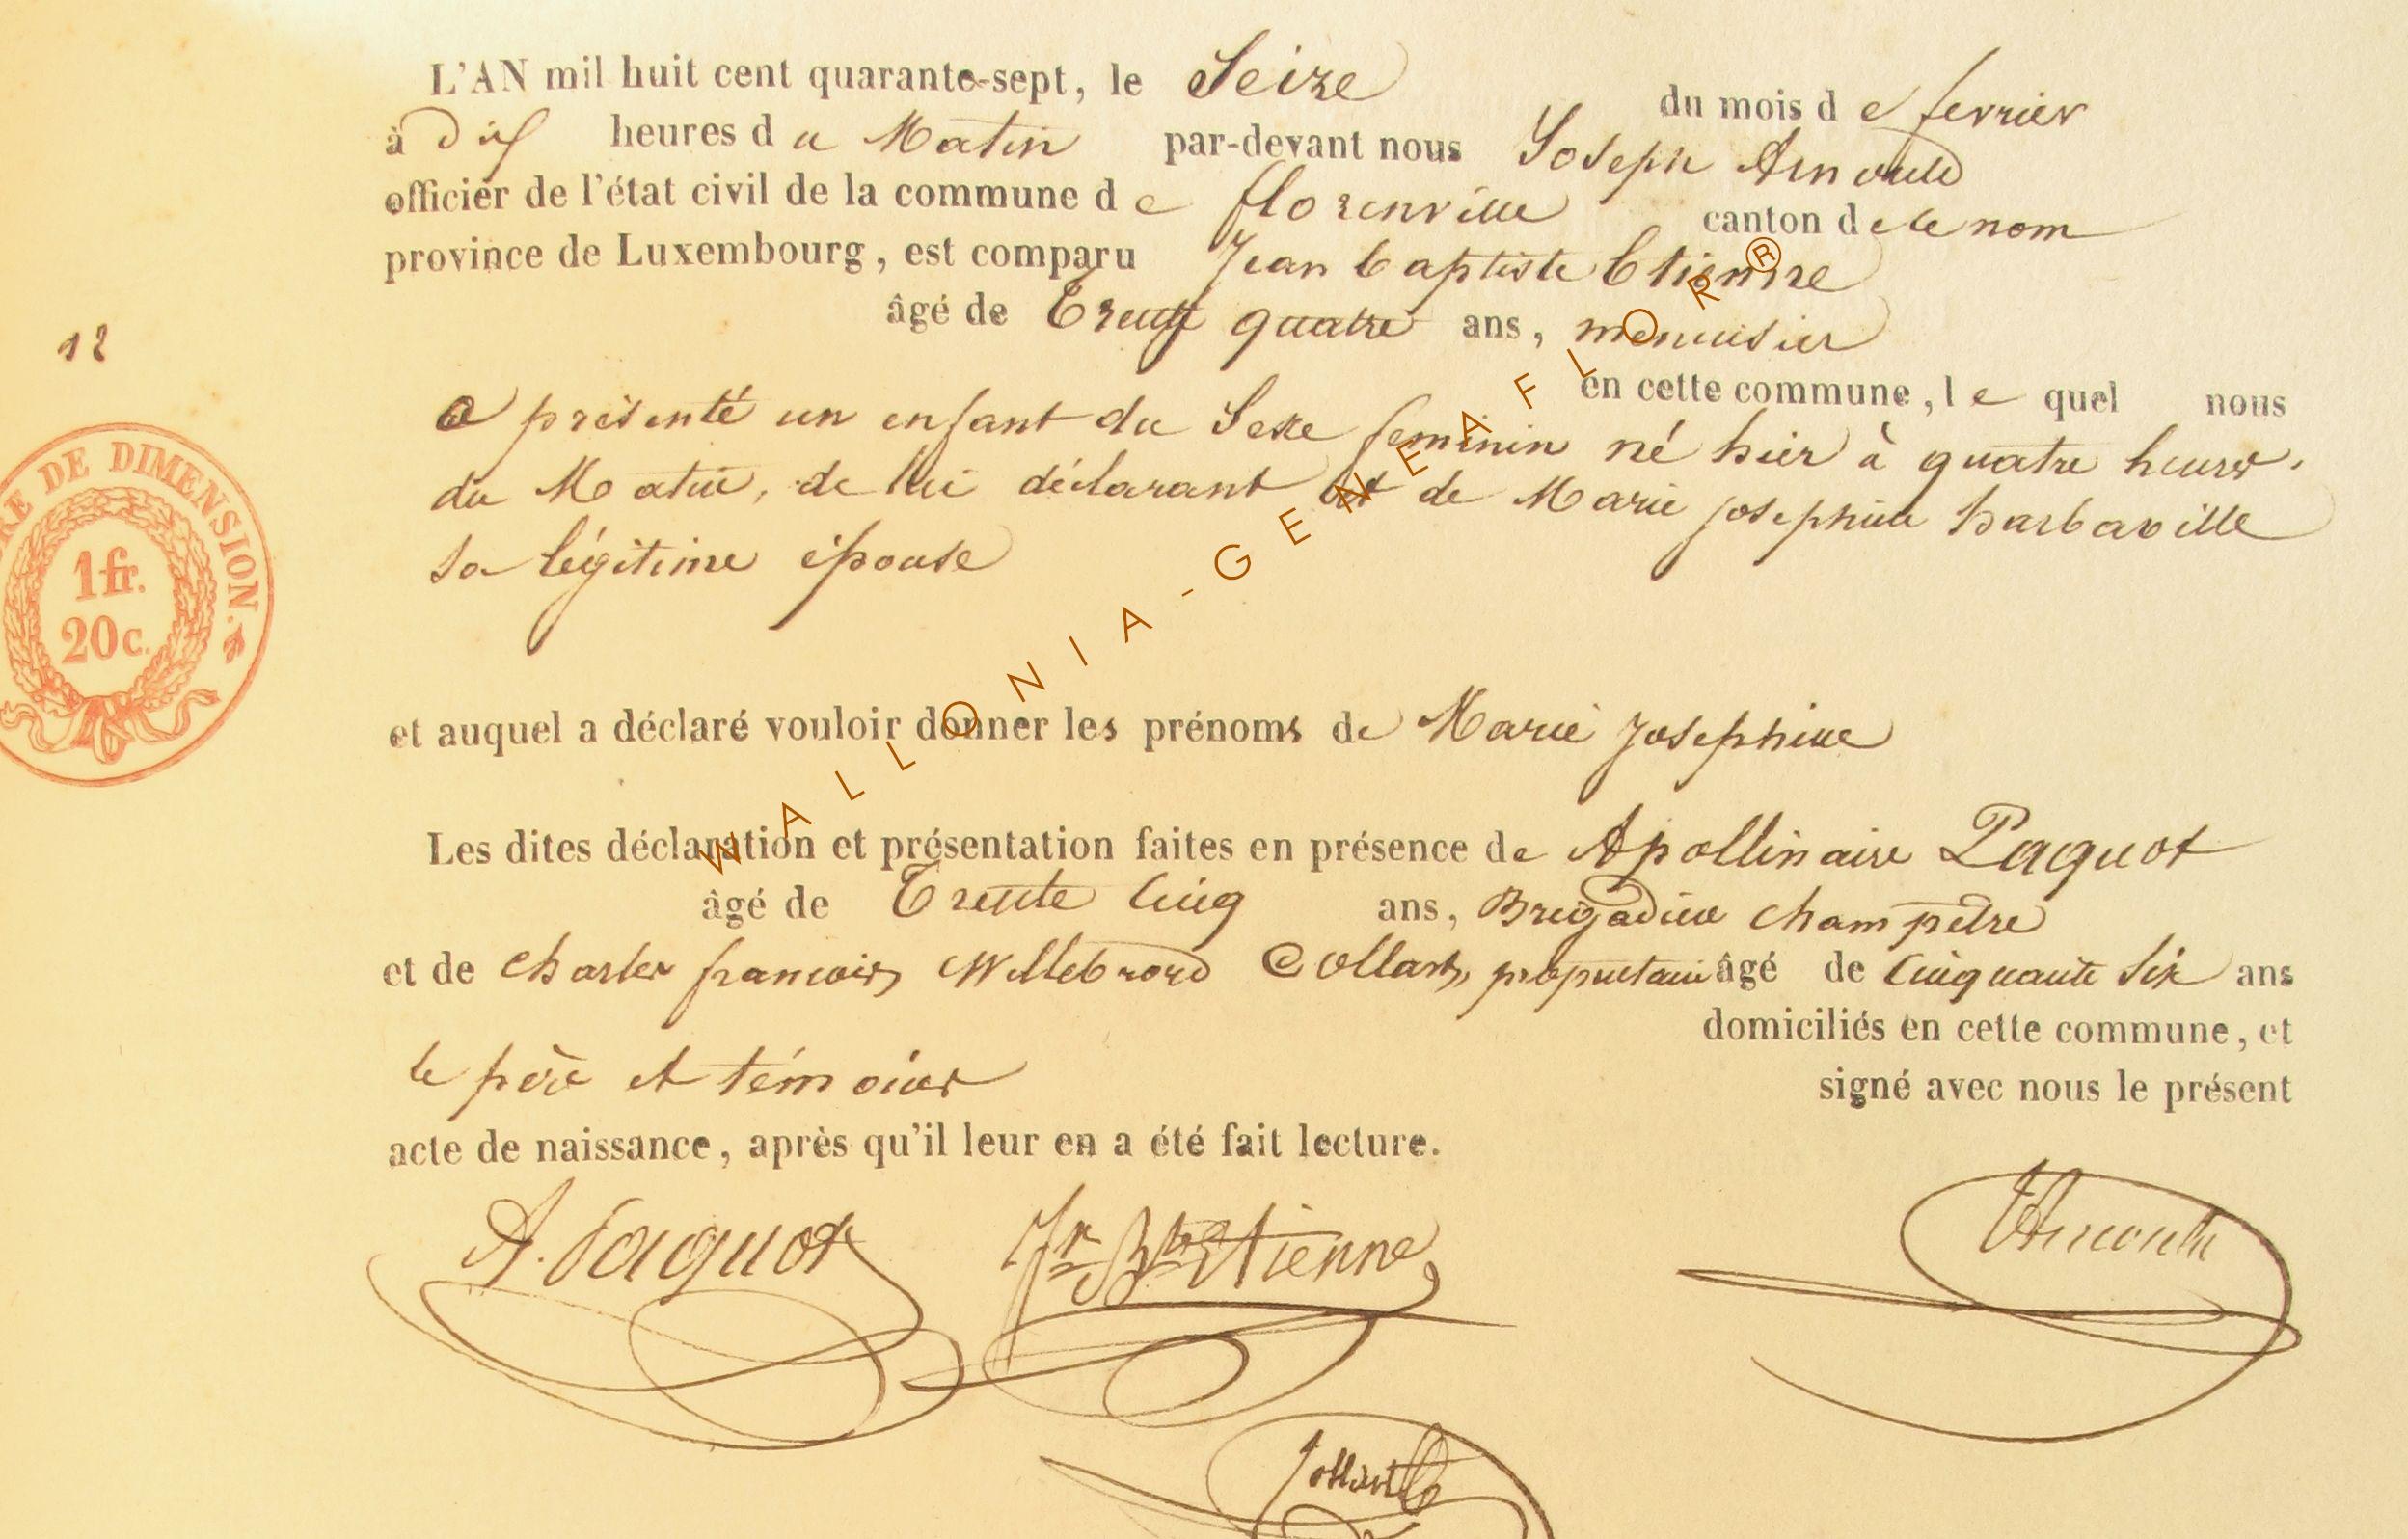 L'AN mil huit cent quarante-sept, le Seize du mois de fevrier
à dix heures du Matin par-devant nous Joseph Arnould
officier de l'état civil de la commune de florenville canton de ce nom
province de Luxembourg, est comparu Jean baptiste Etienne
âgé de Trente quatre ans, menuisier
12
en cette commune, lequel nous
a présenté un enfant du Sexe feminin né hier à quatre heures
du Matin, de lui déclarant et de Marie josephine barbaville
sa légitime épouse
TIMBRE DE DIMENSION.
1 fr.
20 c.
et auquel a déclaré vouloir donner les prénoms de Marie Josephine
Les dites déclaration et présentation faites en présence de Apollinaire Paquot
âgé de Trente Cinq ans, Brigadier champetre
et de charles francois Willebrord Collart, proprietaire âgé de Cinquante Six ans
domiciliés en cette commune, et
le père et témoins signé avec nous le présent
acte de naissance, après qu'il leur en a été fait lecture.
A. Paquot Jn Bte Etienne JArnould
WALLONIA-GENEAFLOR®